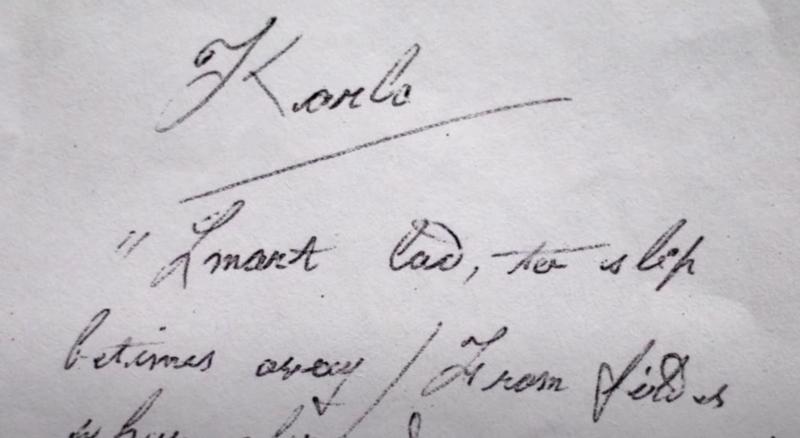 Karlo
"Smart lad, to slip
betimes away / From fields